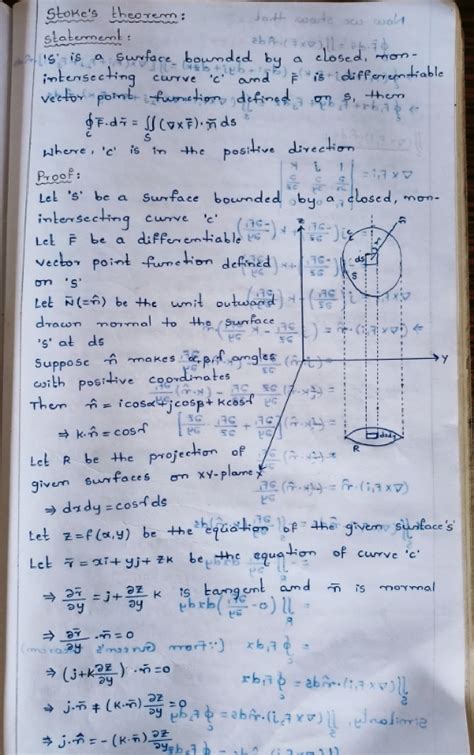 Stoke's theorem:
Statement:
'S' is a surface bounded by a closed, non-
intersecting curve 'c' and F̄ is differentiable
vector point function defined on S, then
∮_c F̄.dr̄ = ∬_S (∇×F̄).n̄ ds
Where, 'c' is in the positive direction
Proof:
Let 'S' be a surface bounded by a closed, non-
intersecting curve 'c'
Let F̄ be a differentiable
vector point function defined
on 'S'
Let N̄(=n̂) be the unit outward
drawn normal to the surface
'S' at ds
Suppose n̂ makes α,β,γ angles
with positive coordinates
Then n̂ = icosα+jcosβ+kcosγ
⇒ k.n̂ = cosγ
Let R be the projection of
given surfaces on xy-plane
⇒ dxdy = cosγ ds
Let z=f(x,y) be the equation of the given surface 's'
Let r̄ = xi+yj+zk be the equation of curve 'c'
⇒ ∂r̄/∂y = j+∂z/∂y k is tangent and n̄ is normal
⇒ ∂r̄/∂y .n̄ = 0
⇒ (j+k ∂z/∂y).n̄ = 0
⇒ j.n̄ + (k.n̄) ∂z/∂y = 0
⇒ j.n̂ = -(k.n̄) ∂z/∂y
z
n̂
c
ds
S
y
x
R
dxdy